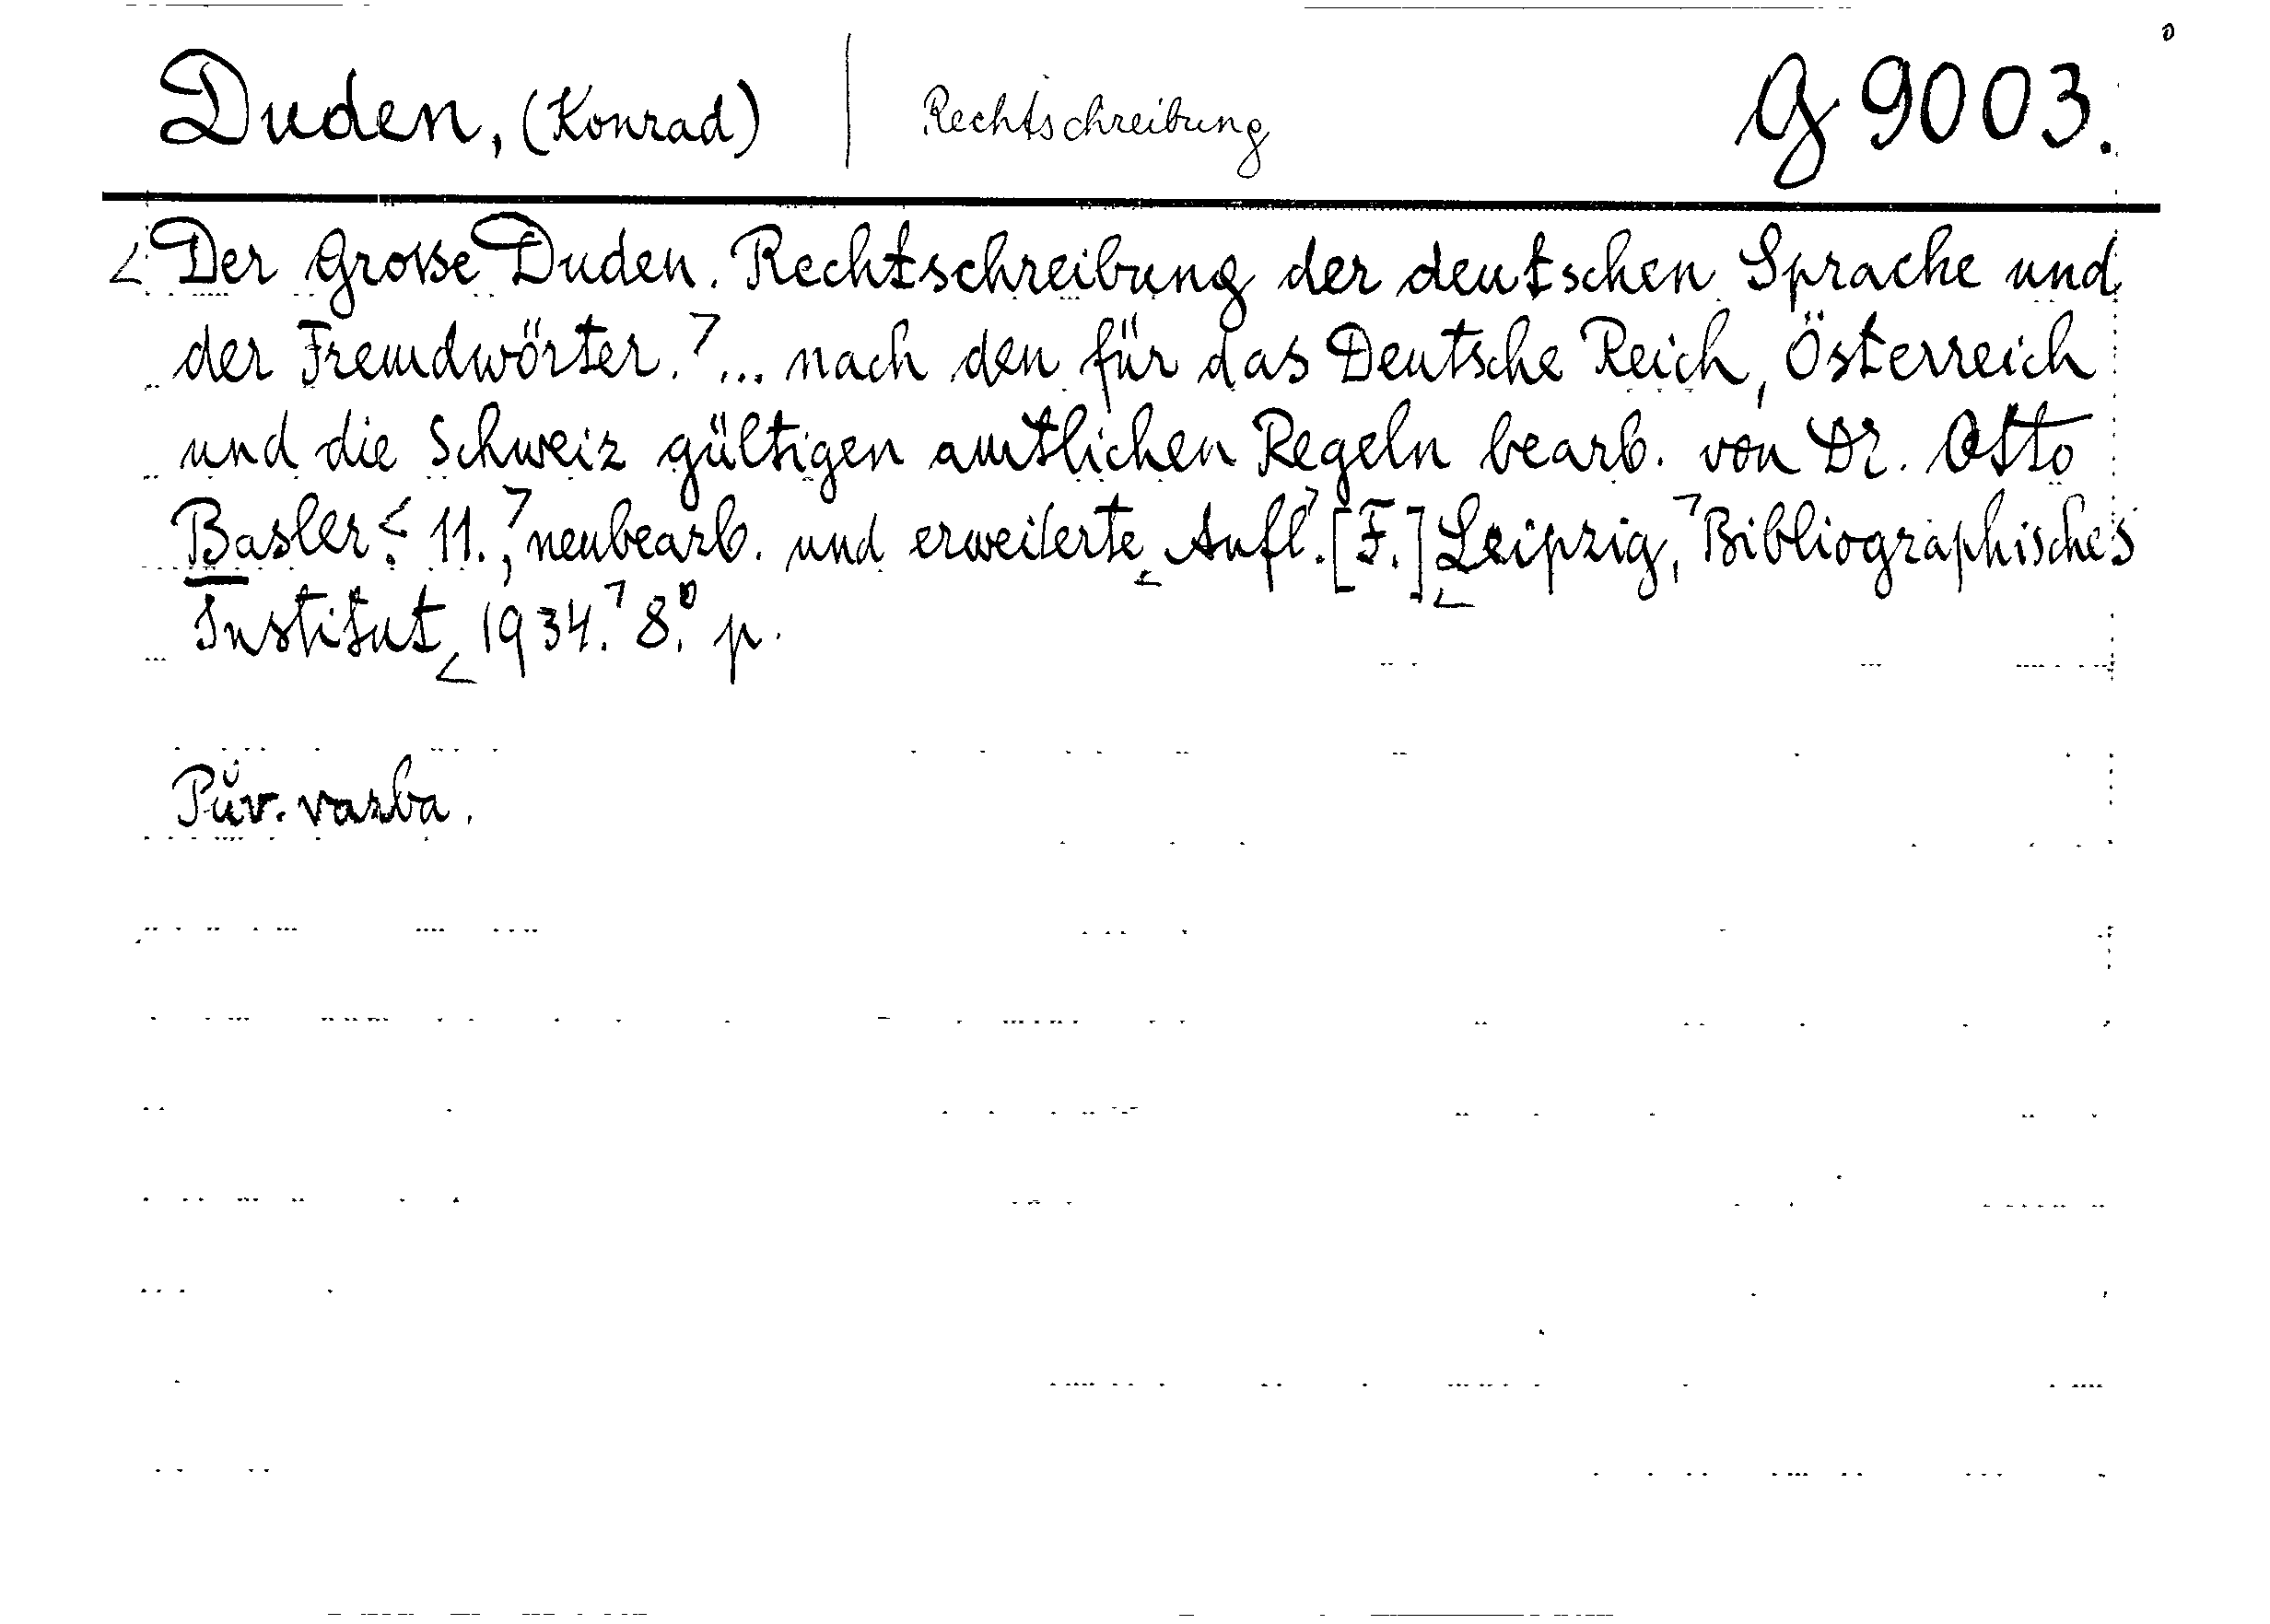 Duden, (Konrad) | Rechtschreibung G 9003.
<Der Grosse Duden. Rechtschreibung der deutschen Sprache und
der Fremdwörter.> ... nach den für das Deutsche Reich, Österreich
und die Schweiz gültigen amtlichen Regeln bearb. von Dr. Otto
Basler.< 11.,> neubearb. und erweiterte< Aufl.> [F.] <Leipzig,> Bibliographisches
Institut< 1934.> 8.° p.
Pův. vazba.